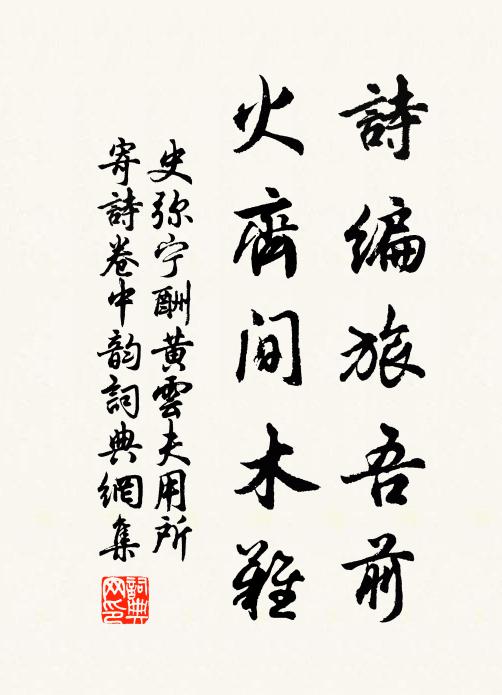 詩編旅吾前
火齊间木難
史弥宁酬黄雲夫用所
寄詩卷中韵詞典網集
詞典网印